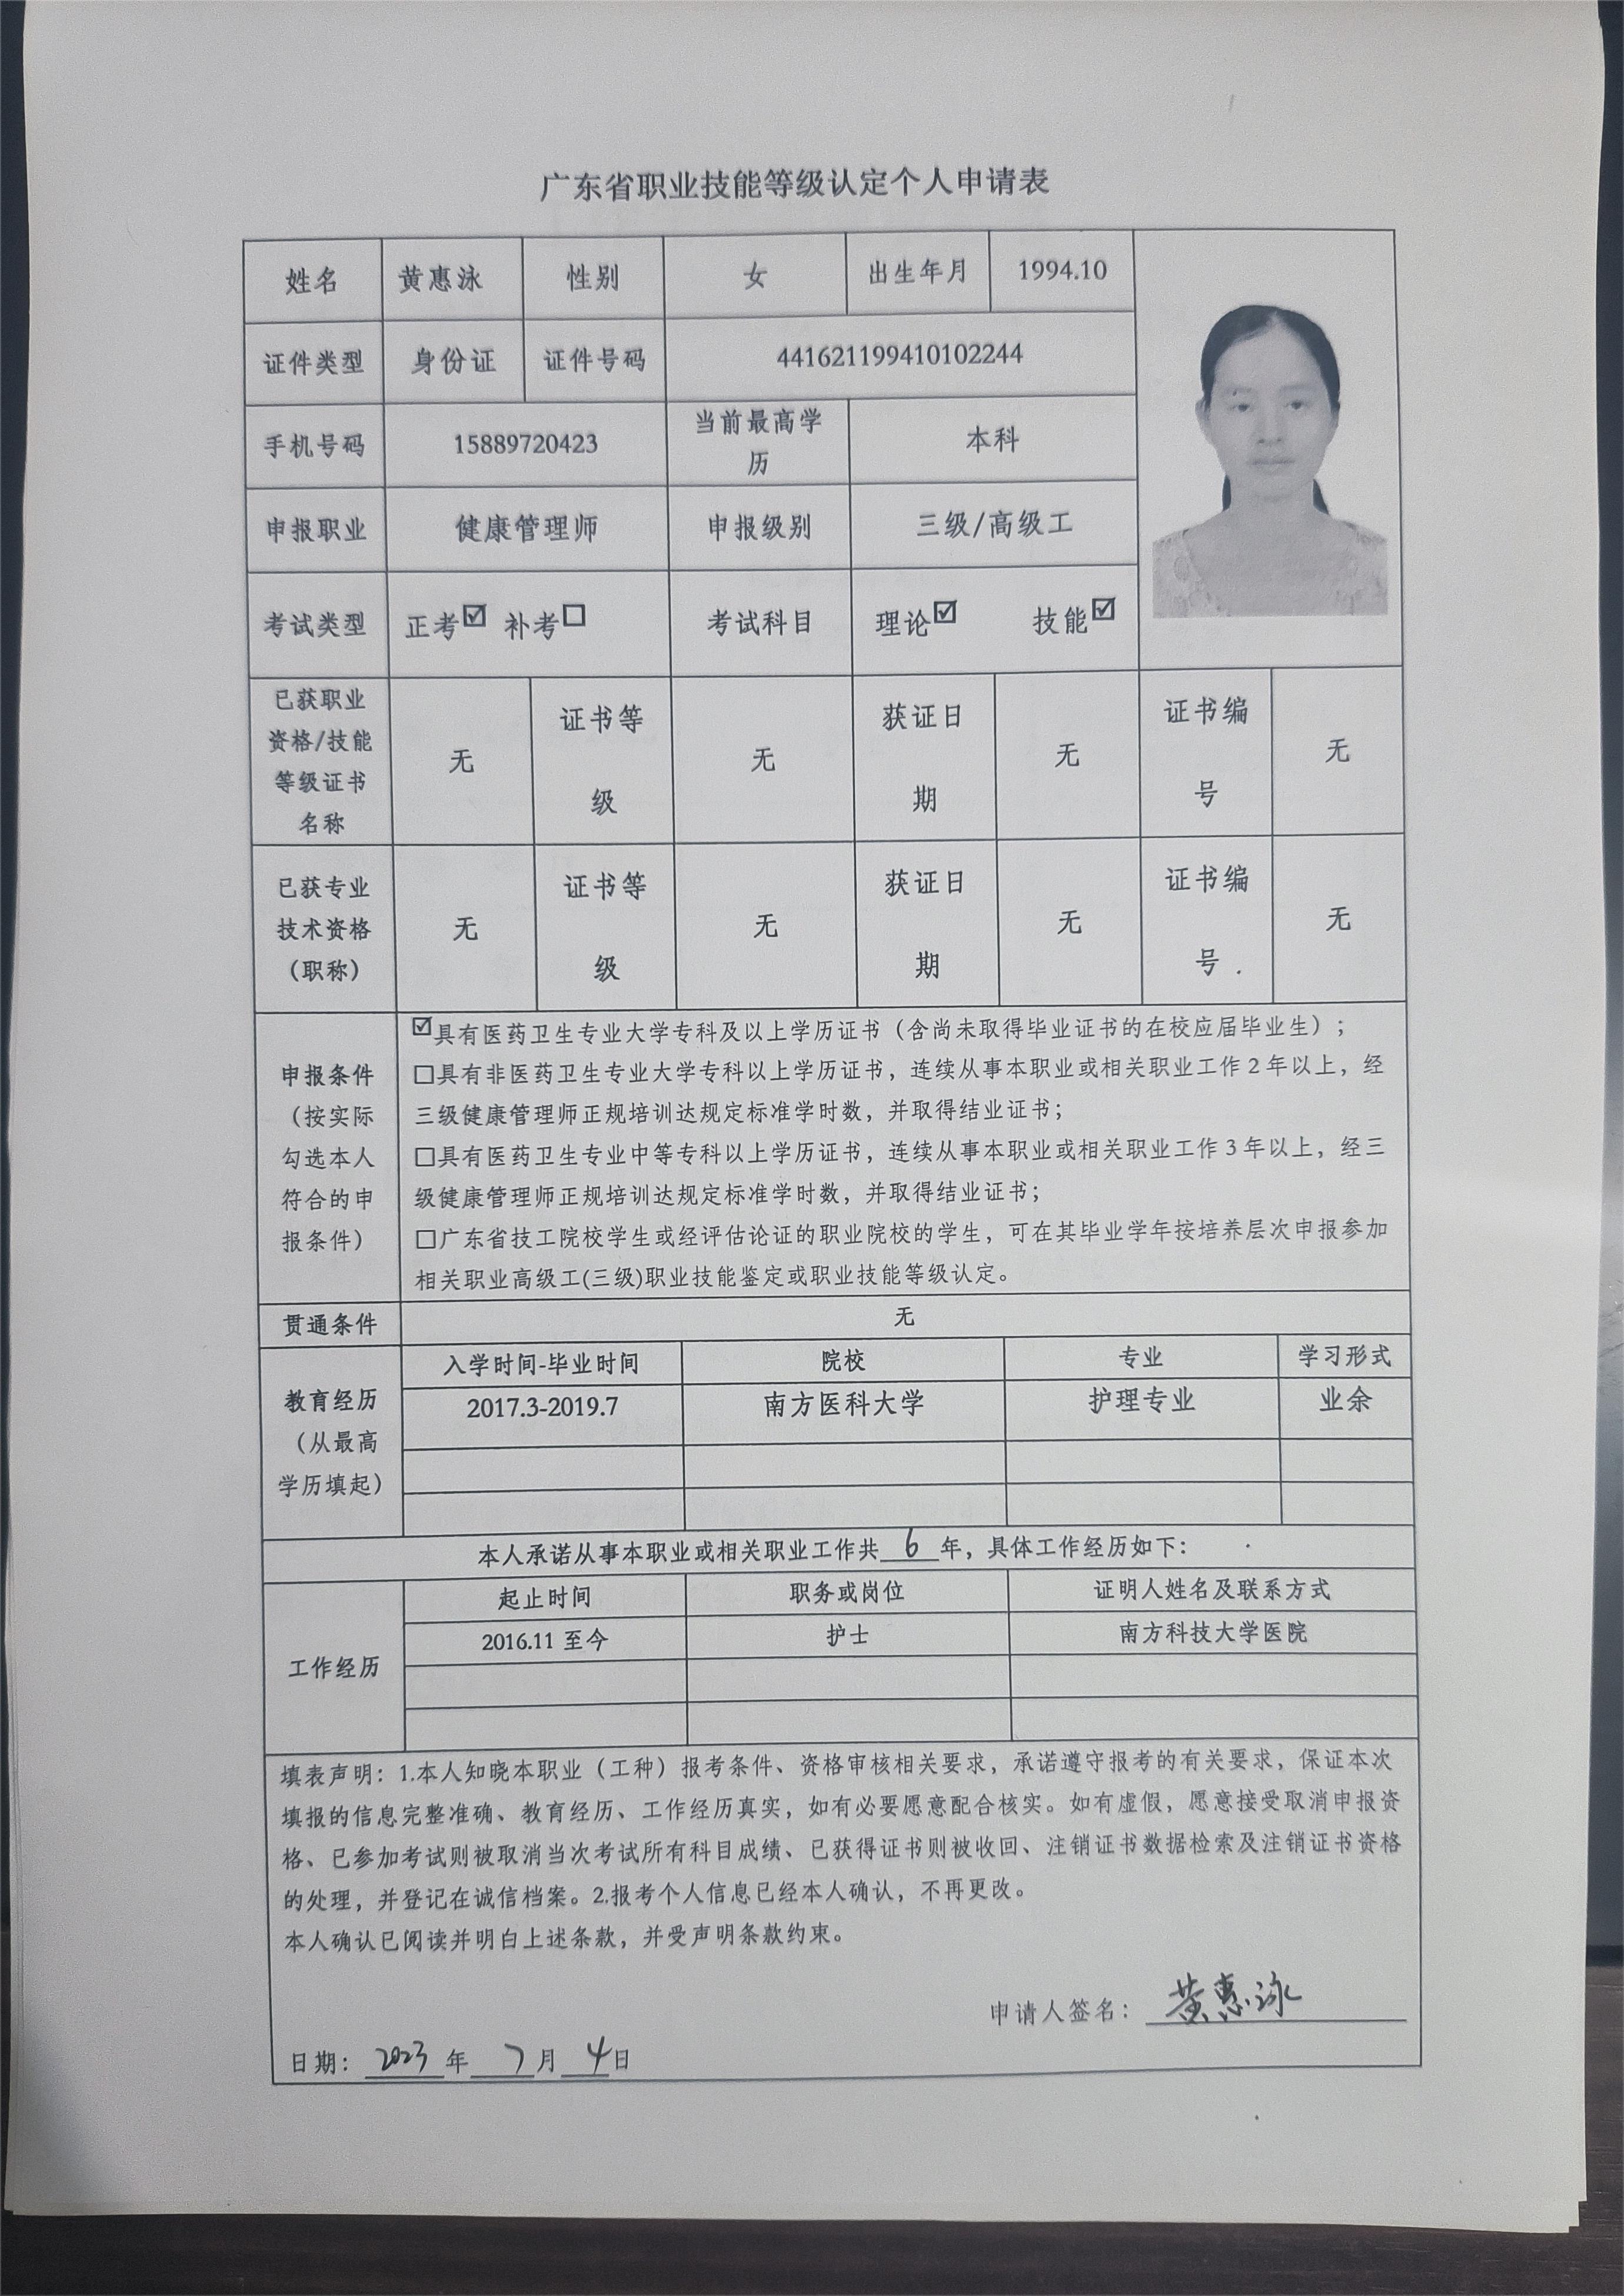 广东省职业技能等级认定个人申请表
姓名 黄惠泳 性别 女 出生年月 1994.10
证件类型 身份证 证件号码 441621199410102244
手机号码 15889720423 当前最高学历 本科
申报职业 健康管理师 申报级别 三级/高级工
考试类型 正考☑ 补考☐ 考试科目 理论☑ 技能☑
已获职业资格/技能等级证书名称 无 证书等级 无 获证日期 无 证书编号 无
已获专业技术资格（职称） 无 证书等级 无 获证日期 无 证书编号 无
申报条件（按实际勾选本人符合的申报条件）
☑具有医药卫生专业大学专科及以上学历证书（含尚未取得毕业证书的在校应届毕业生）；
☐具有非医药卫生专业大学专科以上学历证书，连续从事本职业或相关职业工作2年以上，经
三级健康管理师正规培训达规定标准学时数，并取得结业证书；
☐具有医药卫生专业中等专科以上学历证书，连续从事本职业或相关职业工作3年以上，经三
级健康管理师正规培训达规定标准学时数，并取得结业证书；
☐广东省技工院校学生或经评估论证的职业院校的学生，可在其毕业学年按培养层次申报参加
相关职业高级工(三级)职业技能鉴定或职业技能等级认定。
贯通条件 无
教育经历（从最高学历填起）
入学时间-毕业时间 院校 专业 学习形式
2017.3-2019.7 南方医科大学 护理专业 业余
本人承诺从事本职业或相关职业工作共 6 年，具体工作经历如下：
工作经历
起止时间 职务或岗位 证明人姓名及联系方式
2016.11 至今 护士 南方科技大学医院
填表声明：1.本人知晓本职业（工种）报考条件、资格审核相关要求，承诺遵守报考的有关要求，保证本次
填报的信息完整准确、教育经历、工作经历真实，如有必要愿意配合核实。如有虚假，愿意接受取消申报资
格、已参加考试则被取消当次考试所有科目成绩、已获得证书则被收回、注销证书数据检索及注销证书资格
的处理，并登记在诚信档案。2.报考个人信息已经本人确认，不再更改。
本人确认已阅读并明白上述条款，并受声明条款约束。
申请人签名：黄惠泳
日期：2023 年 7 月 4 日